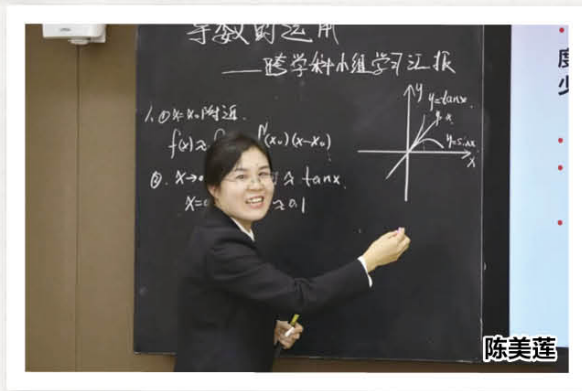 导数的运用
——跨学科小组学习汇报
1. ① x=x₀附近
f(x)≈f'(x₀)(x-x₀)
② x→ ≈tanx
x= ≈0.1
y
y=tanx
y=x
y=sinx
x
度
少
陈美莲